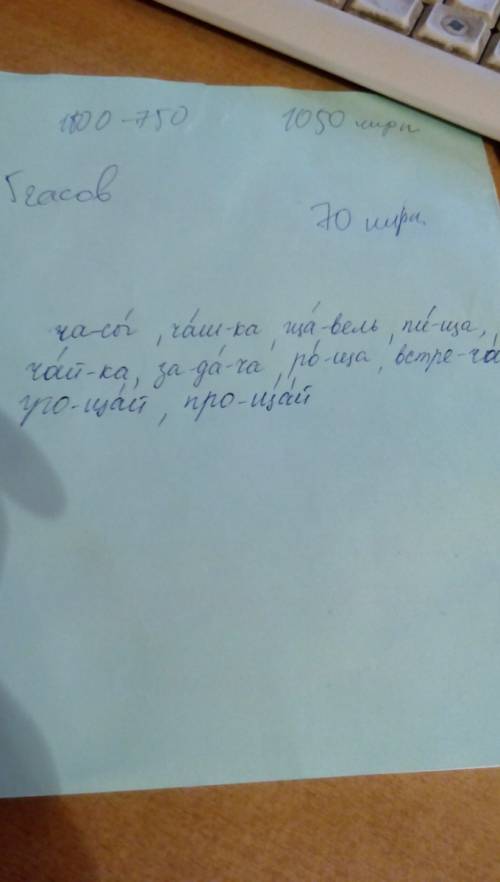 1100-750 1050 шири
5 часов
70 шири.
ча-сы́, ча́ш-ка, ща́-вель, пи́-ща,
ча́й-ка, за-да́-ча, ро́-ща, встре-ча
уго-ща́й, про-ща́й